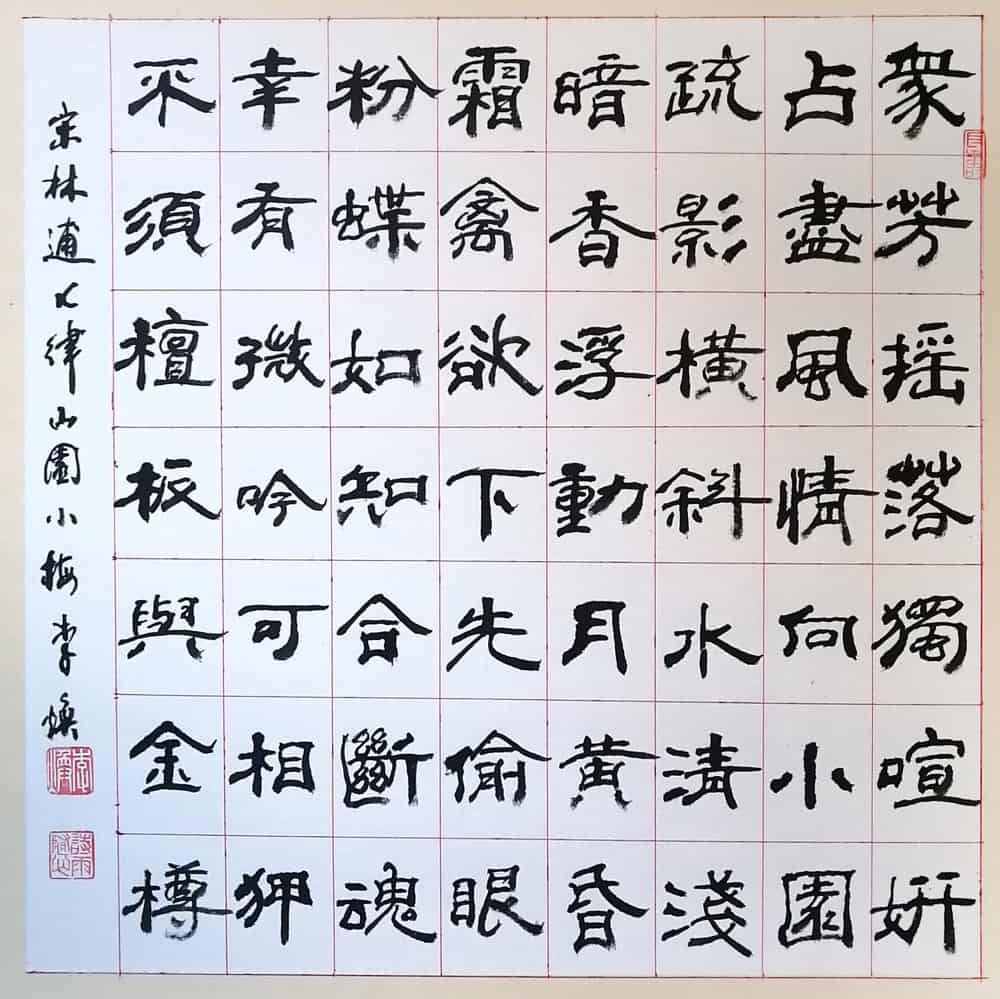 衆芳摇落獨喧妍
占盡風情向小園
疏影橫斜水清淺
暗香浮動月黃昏
霜禽欲下先偷眼
粉蝶如知合斷魂
幸有微吟可相狎
不須檀板與金樽
宋林逋七律山園小梅李焕